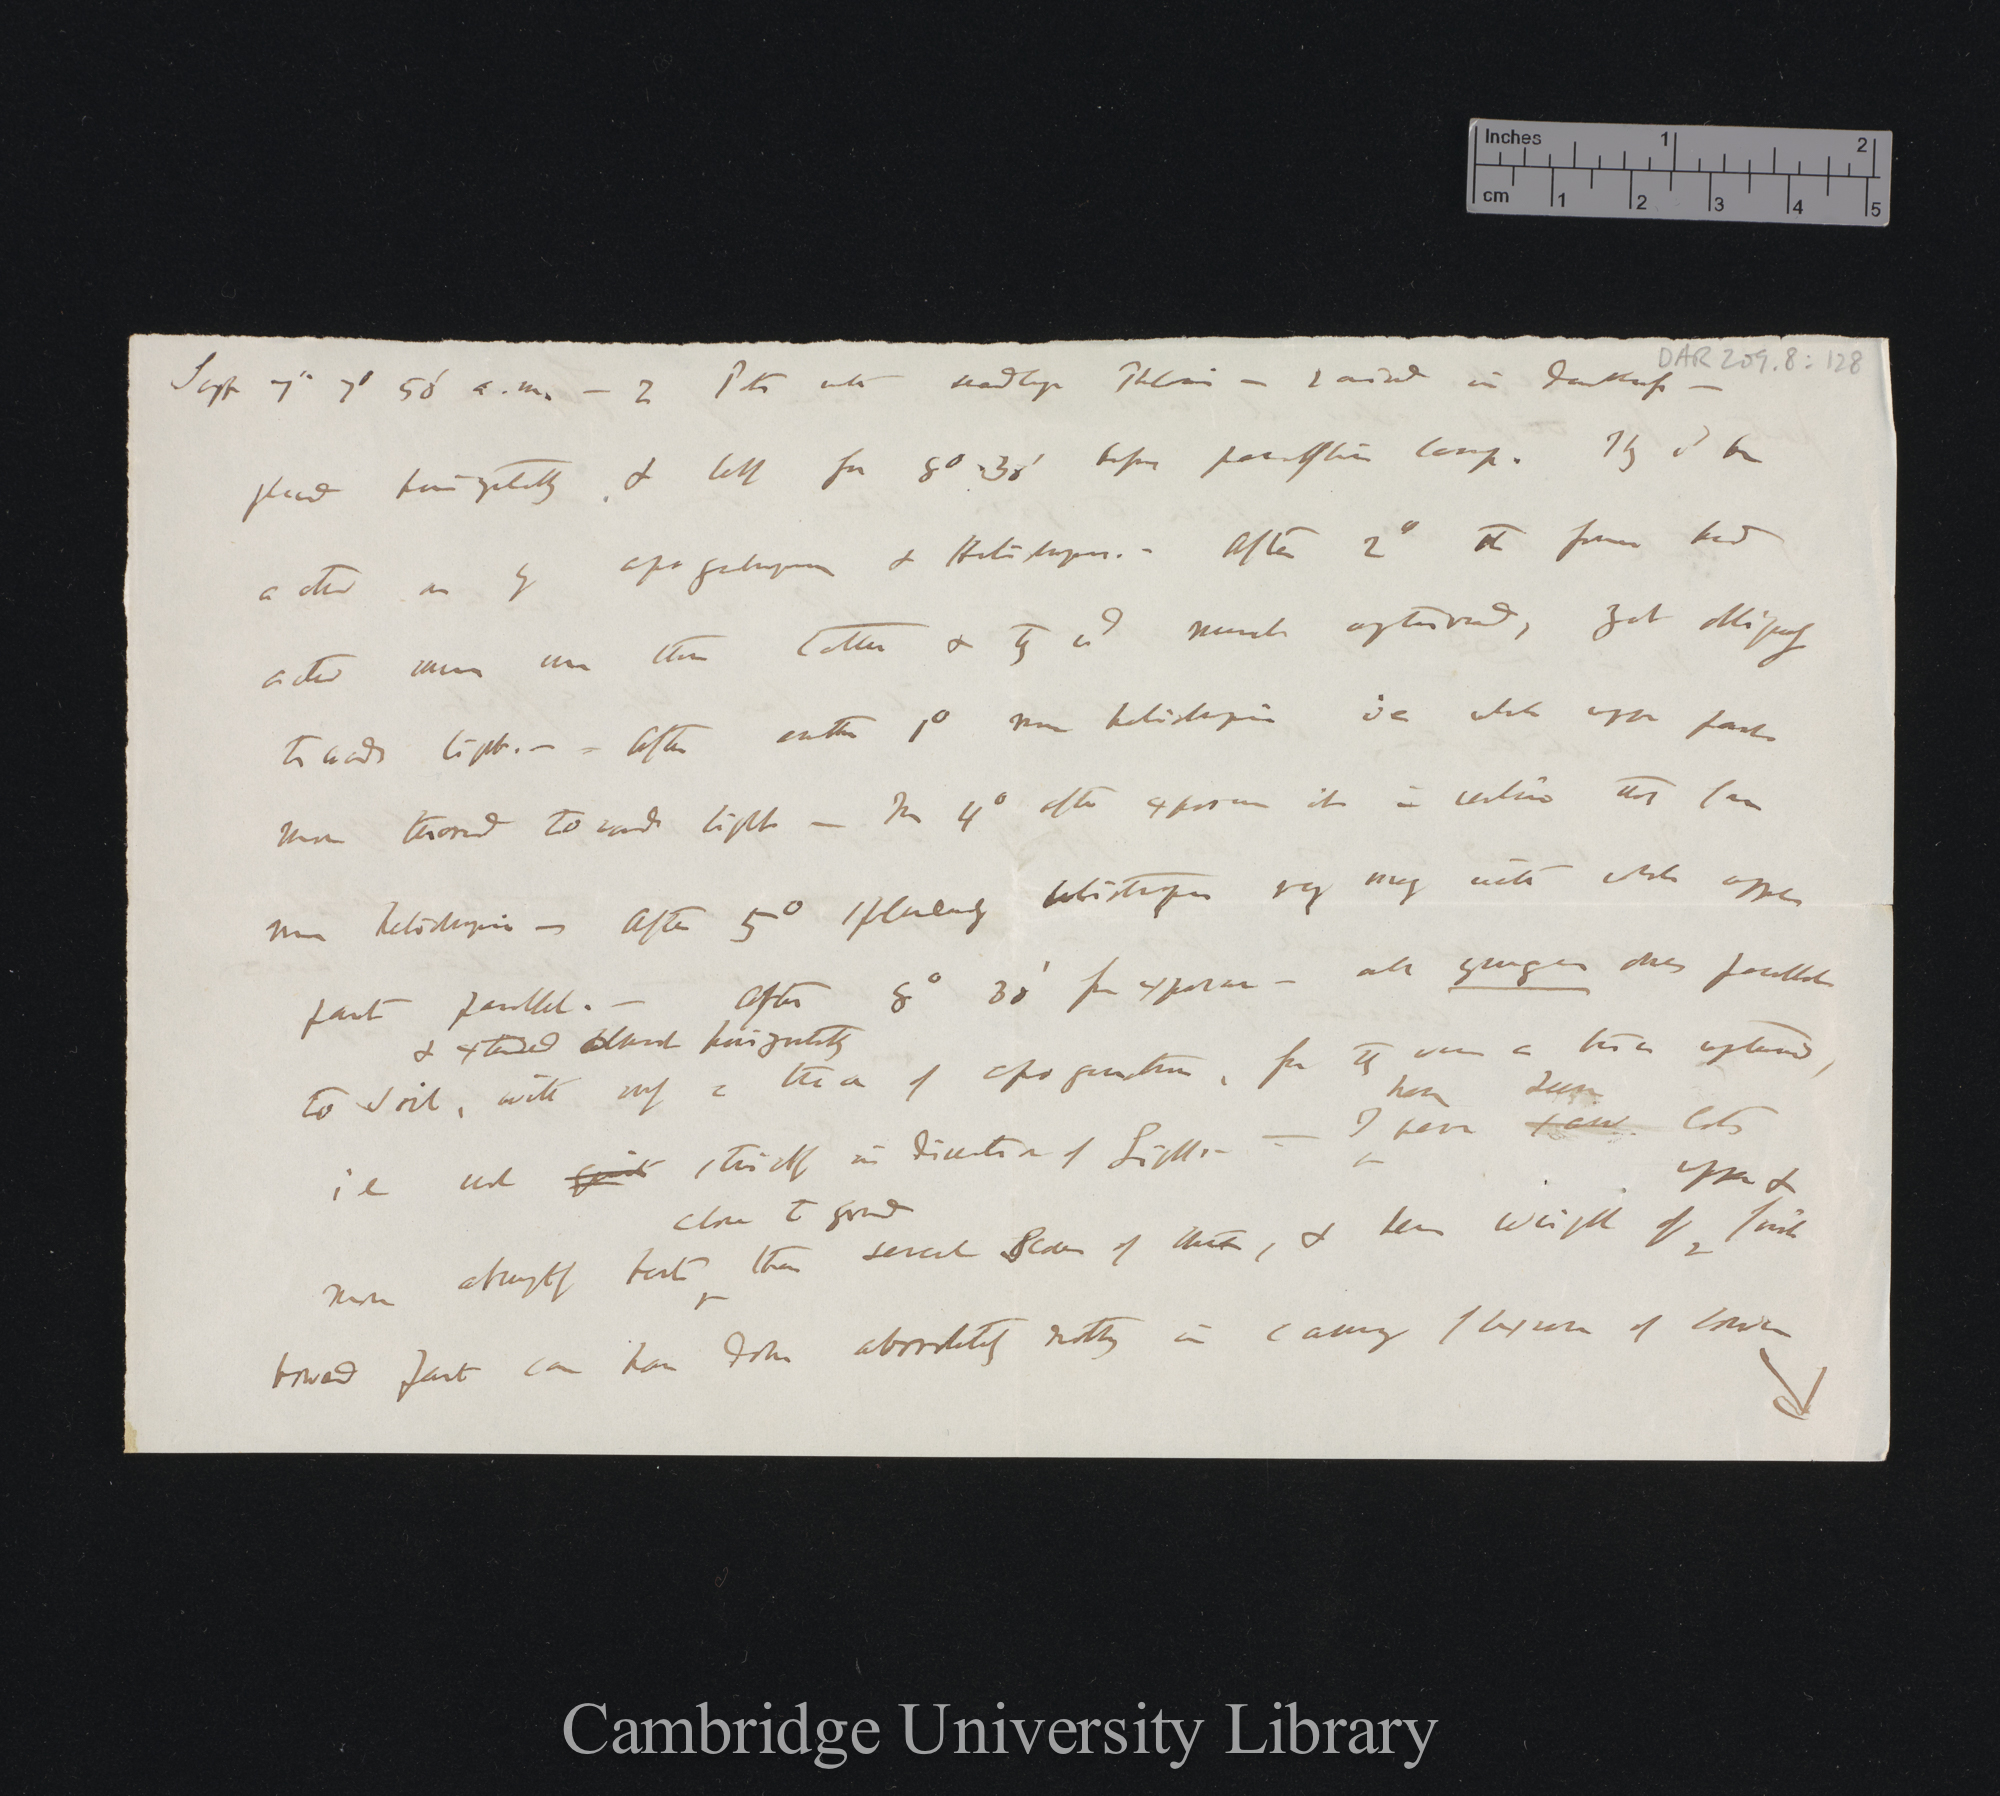 Inches 1 2
cm 1 2 3 4 5
DAR 209.8: 128
Sept 7th 7° 50' a.m. — 2 Pots with seedling Phalaris — raised in darkness —
placed horizontally, & left for 8° 30' before paraffin lamp. They wd be
acted on by apogeotropism & Heliotropism. — After 2° the former had
acted more than latter & they wd much upturned, yet obliquely
towards light. — After another 1° more heliotropic ie whole upper part
more turned towards light — In 4° after exposure it is certain that
more heliotropic — After 5° splendidly heliotropic very many with whole upper
part parallel. — After 8° 30' from exposure — all younger ones parallel
& extended almost horizontally
to soil, with only a trace of apogeotropism, for they were a trace upturned,
have seen
ie not quite strictly in direction of Light. — I have saw lots
upper &
close to ground
more abruptly bent than several Blades of these, & here weight of 2
bowed part can have done absolutely nothing in causing flexure of lower
Cambridge University Library